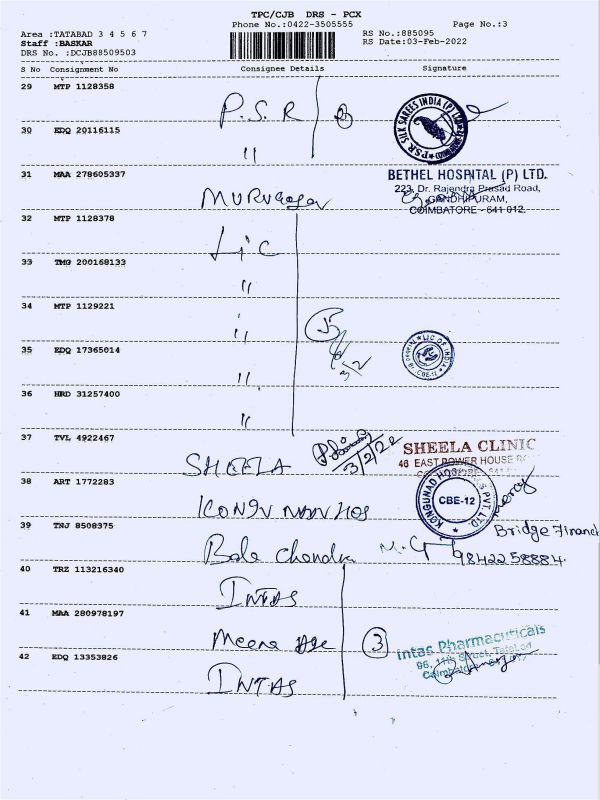 TPC/CJB DRS - PCX
Phone No.:0422-3505555
Page No.:3
Area :TATABAD 3 4 5 6 7
Staff :BASKAR
DRS No. :DCJB88509503
RS No.:885095
RS Date:03-Feb-2022
S No Consignment No Consignee Details Signature
29 MTP 1128358
P.S.R
PSR SILK SAREES INDIA (P)
30 EDQ 20116115
"
31 MAA 278605337
BETHEL HOSPITAL (P) LTD.
223, Dr. Rajendra Prasad Road,
GANDHIPURAM,
COIMBATORE - 641 012.
32 MTP 1128378
Lic
33 TMG 200168133
"
34 MTP 1129221
"
5
35 EDQ 17365014
"
LIC OF INDIA
CBE-12
36 HRD 31257400
"
37 TVL 4922467
SHEELA
3/2/22
SHEELA CLINIC
46 EAST POWER HOUSE
38 ART 1772283
KONGUNAD HOSPITAL PVT. LTD.
CBE-12
39 TNJ 8508375
Bala Chandra
Bridge Financ
9842258884
40 TRZ 113216340
INTAS
41 MAA 280978197
Meena
3
Intas Pharmaceuticals
42 EDQ 13353826
INTAS